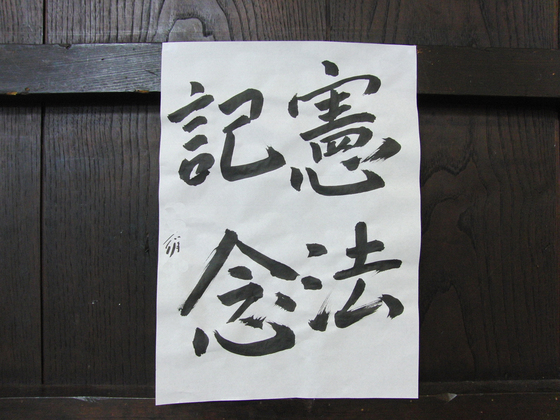 憲法
記念
絹